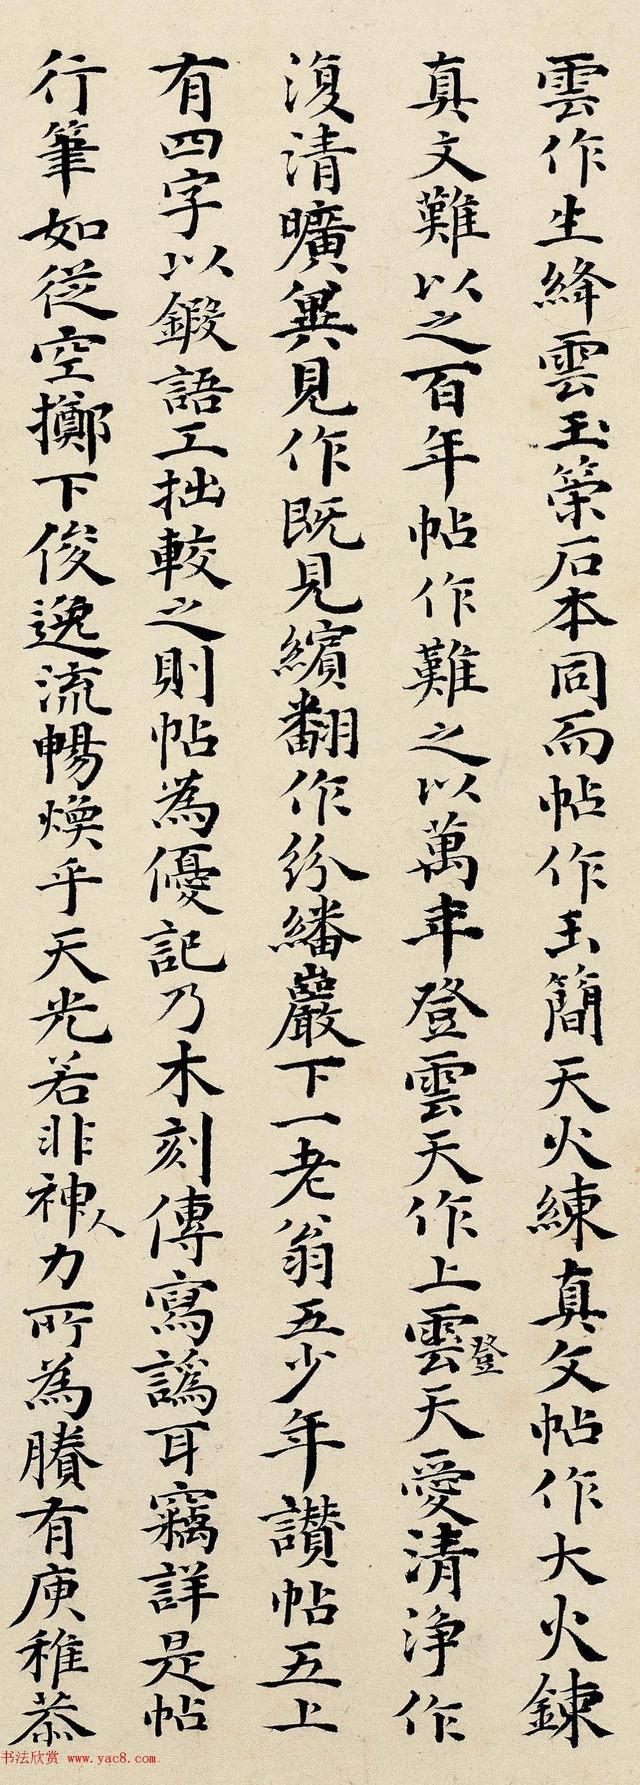 雲作生絳雲玉策石本同而帖作玉簡天火練真文帖作大火鍊
真文難以之百年帖作難之以萬年登雲天作上雲登天愛清淨作
復清曠異見作既見繽翻作紛繙巖下一老翁五少年讚帖五上
有四字以鍛語工拙較之則帖為優記乃木刻傳寫譌耳竊詳是帖
行筆如從空擲下俊逸流暢煥乎天光若非神人力所為賸有庾稚恭
书法欣赏 www.yac8.com